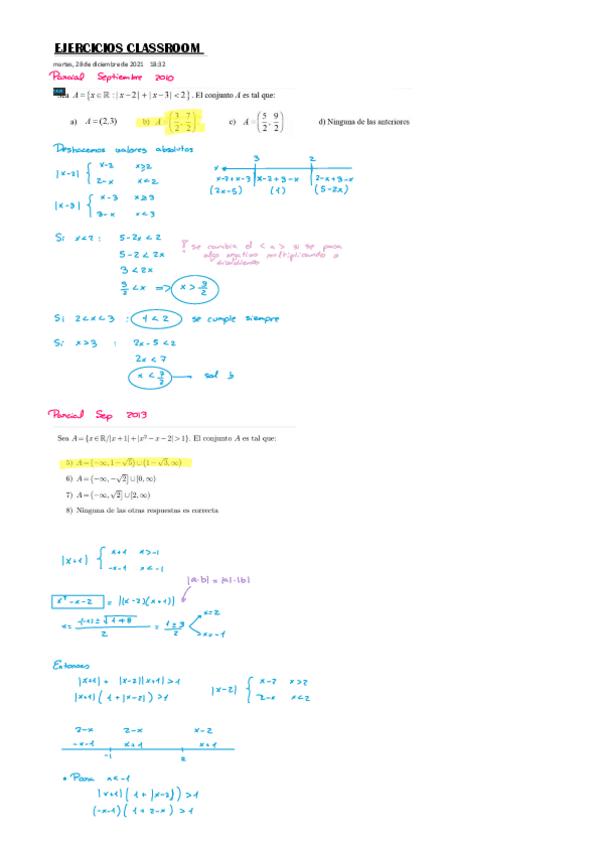 EJERCICIOS CLASSROOM
martes, 28 de diciembre de 2021 18:32
Parcial Septiembre 2010
Sea A = {x ∈ ℝ : | x − 2 | + | x − 3 | < 2}. El conjunto A es tal que:
a) A = (2,3) b) A = (3/2, 7/2) c) A = (5/2, 9/2) d) Ninguna de las anteriores
Deshacemos valores absolutos
|x-2| { x-2 x≥2
2-x x<2
|x-3| { x-3 x≥3
3-x x<3
x 3 2
x-2+x-3 x-2+3-x 2-x+3-x
(2x-5) (1) (5-2x)
Si x<2: 5-2x<2
5-2<2x
3<2x
3/2<x => x>3/2
! se cambia el < a > si se pasa
algo negativo multiplicando o
dividiendo
Si 2<x<3 : 1<2 se cumple siempre
Si x>3 : 2x-5<2
2x<7
x<7/2 → sol b
Parcial Sep 2013
Sea A = {x ∈ ℝ/|x + 1| + |x² − x − 2| > 1}. El conjunto A es tal que:
5) A = (−∞, 1 − √5) ∪ (1 − √3, ∞)
6) A = (−∞, −√2] ∪ [0, ∞)
7) A = (−∞, √2] ∪ [2, ∞)
8) Ninguna de las otras respuestas es correcta
|x+1| { x+1 x>-1
-x-1 x<-1
|a·b| = |a|·|b|
x²-x-2 = |(x-2)(x+1)|
x = -(-1)±√1+8 / 2 = 1±3 / 2 x=2
x=-1
Entonces
|x+1| + |x-2||x+1|>1
|x+1| (1+|x-2|)>1
|x-2| { x-2 x>2
2-x x<2
2-x 2-x x-2
-x-1 x+1 x+1
-1 2
• Para x<-1
|x+1| (1+|x-2|)>1
(-x-1) (1+2-x)>1